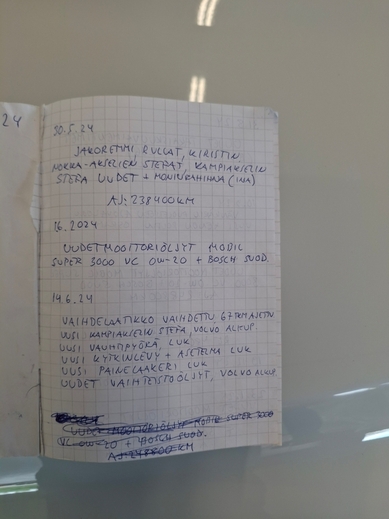 24
30.5.24
JAKOREMMI, RULLAT, KIRISTIN
NOKKA-AKSELIEN STEFAT, KAMPIAKSELIN
STEFA UUDET + MONIURAHIHNA (INA)
AJ: 238400KM
16.2024
UUDET MOOTTORIÖLJYT MOBIL
SUPER 3000 VC 0W-20 + BOSCH SUOD.
14.6.24
VAIHDELAATIKKO VAIHDETTU 67TKM AJETTU
UUSI KAMPIAKSELIN STEFA, VOLVO ALKUP.
UUSI VAUHTIPYÖRÄ, LUK
UUSI KYTKINLEVY + ASETELMA LUK
UUSI PAINELAAKERI, LUK
UUDET VAIHTEISTOÖLJYT, VOLVO ALKUP.
UUDET MOOTTORIÖLJYT MOBIL SUPER 3000
VC 0W-20 + BOSCH SUOD.
AJ 248800 KM